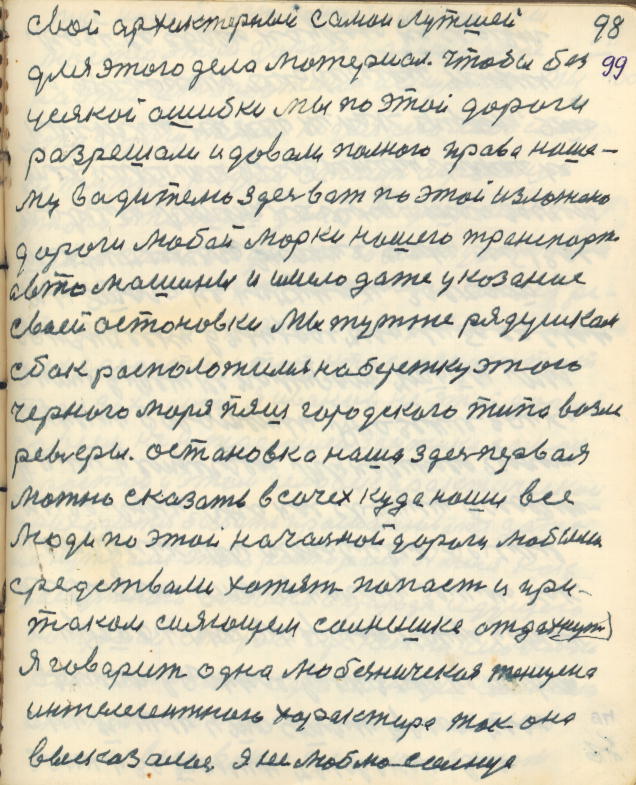 свой архиктерный самои лутшей 98
для этого дела мотериал. чтобы без 99
усякой ошибки мы по этой дороги
разрешали и довали полного права наше-
му вадителю здесь ват по этой изложено
дороги любай морки нашего транспорт
автомашины и имело даже указание
своей остоновки мы тутже рядушкам
сбак расположился на бережку этого
черного моря пляш городского типа возле
реверы. остановка наша здес первая
можно сказать в сочех куда наши все
люди по этой начаяной дороги любыми
средствами хотят попаст и при-
таком сияющем солнышке отдахнут)
Я говарит одна любеническая женщена
интелегентного характира так она
высказалас я не люблю солнце